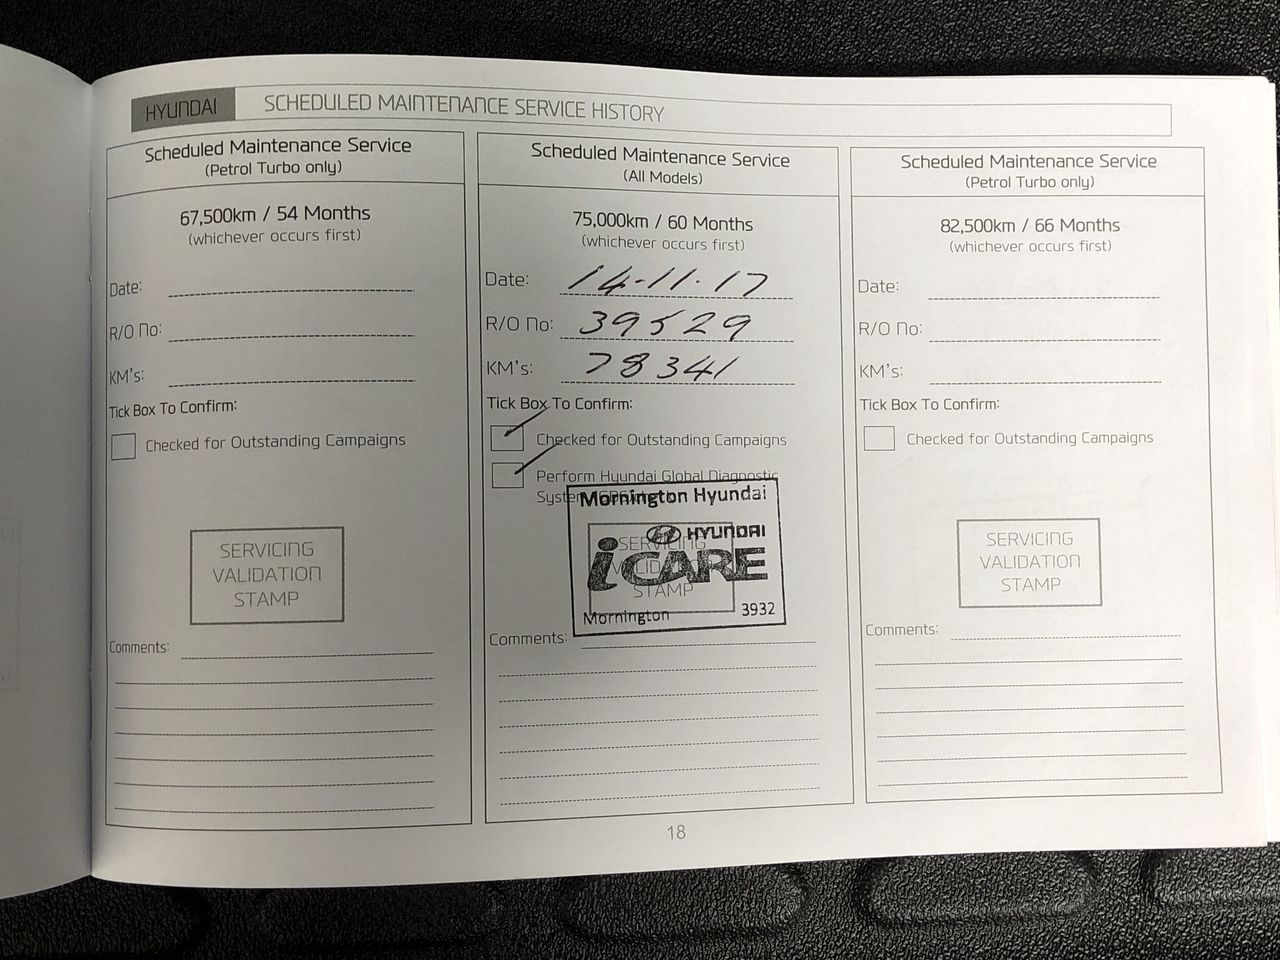 HYUNDAI
SCHEDULED MAINTENANCE SERVICE HISTORY
Scheduled Maintenance Service
(Petrol Turbo only)
67,500km / 54 Months
(whichever occurs first)
Date:
R/O No:
KM's:
Tick Box To Confirm:
Checked for Outstanding Campaigns
SERVICING
VALIDATION
STAMP
Comments:
Scheduled Maintenance Service
(All Models)
75,000km / 60 Months
(whichever occurs first)
Date: 14-11-17
R/O No: 39529
KM's: 78341
Tick Box To Confirm:
Checked for Outstanding Campaigns
Perform Hyundai Global Diagnostic
Mornington Hyundai
HYUNDAI
iCARE
SERVICING
STAMP
Mornington 3932
Comments:
Scheduled Maintenance Service
(Petrol Turbo only)
82,500km / 66 Months
(whichever occurs first)
Date:
R/O No:
KM's:
Tick Box To Confirm:
Checked for Outstanding Campaigns
SERVICING
VALIDATION
STAMP
Comments:
18